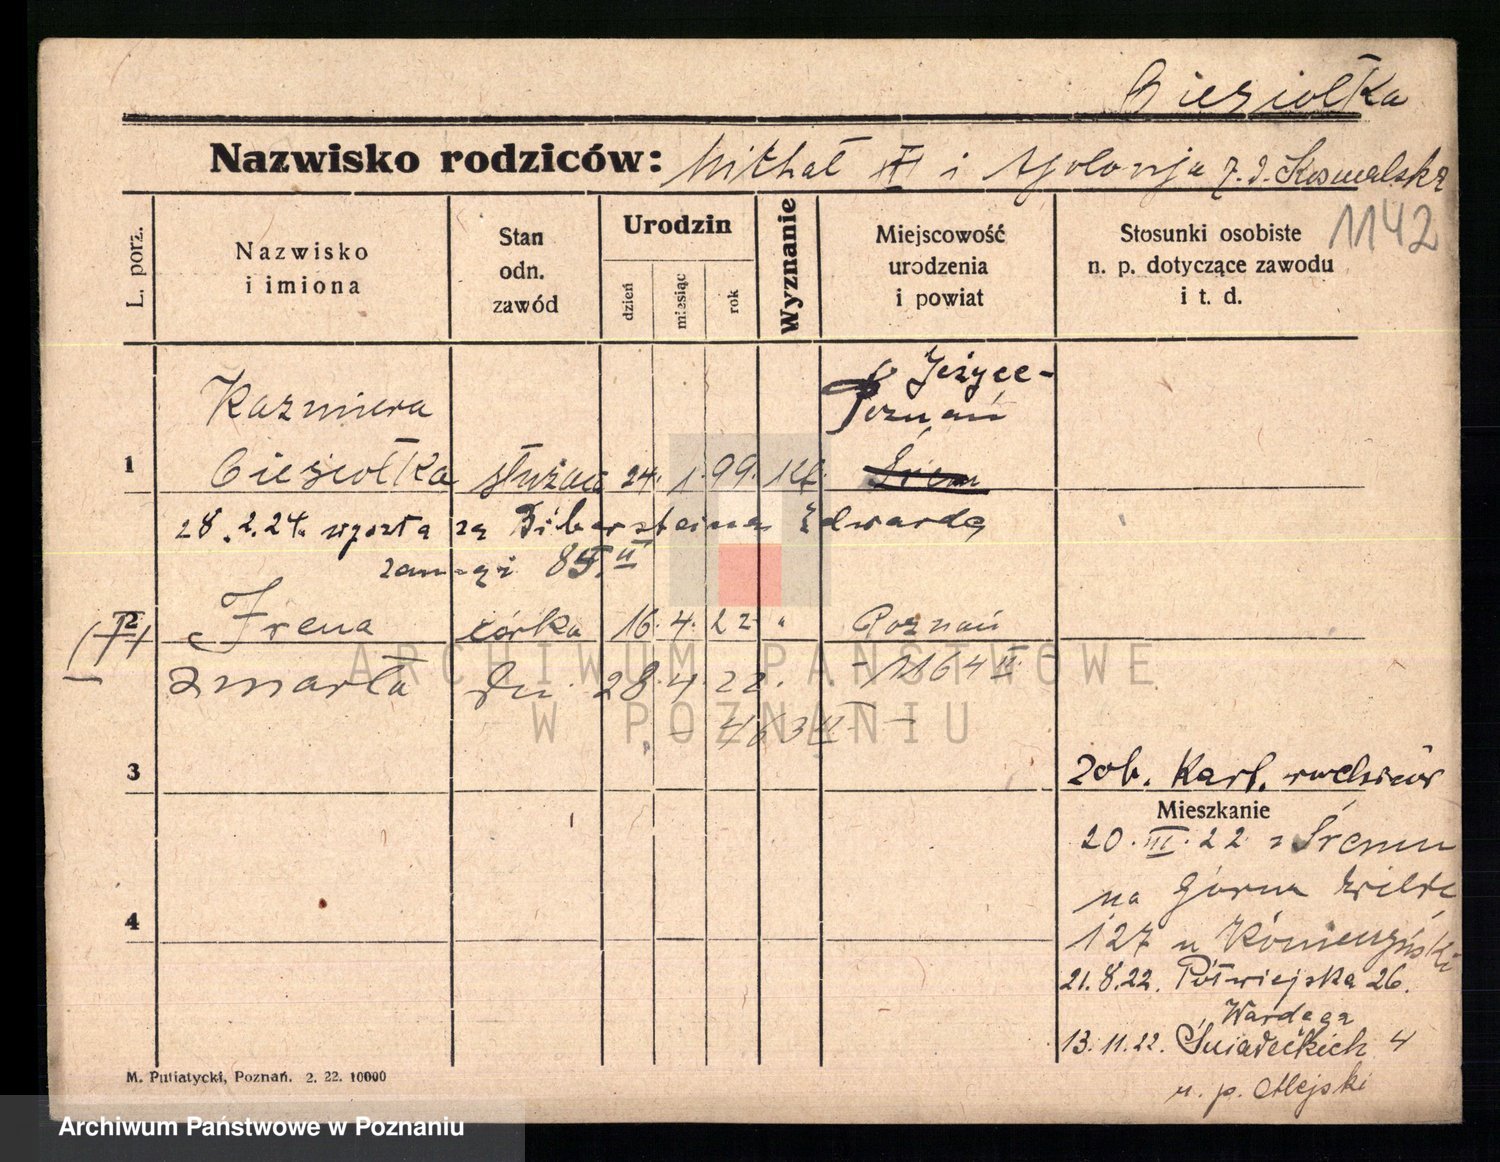 Ciesiołka
Nazwisko rodziców: Michał i Apolonja z d. Kosmalska
1142
L. porz.
Nazwisko i imiona
Stan odn. zawód
Urodzin
dzień
miesiąc
rok
Wyznanie
Miejscowość urodzenia i powiat
Stosunki osobiste n. p. dotyczące zawodu i t. d.
Jeżyce-
Kazmiera Poznań
1 Ciesiołka służąca 24. 1. 99. kt. Śrem
28. 2. 24. wyszła za Bibersteina Edwarda
zamąż 85. II
Irena córka 16. 4. 22 " Poznań
zmarła dn. 28. 4. 22. - 1164 II
- 463 II -
3
zob. Kart. rodziców
Mieszkanie
20. III. 22 z Śremu
na Górna Wilda
4
127 u
21. 8. 22. Półwiejska 26.
Wardęga
13. 11. 22. Śniadeckich 4
u. p.
M. Putiatycki, Poznań. 2. 22. 10000
ARCHIWUM PAŃSTWOWE
W POZNANIU
Archiwum Państwowe w Poznaniu